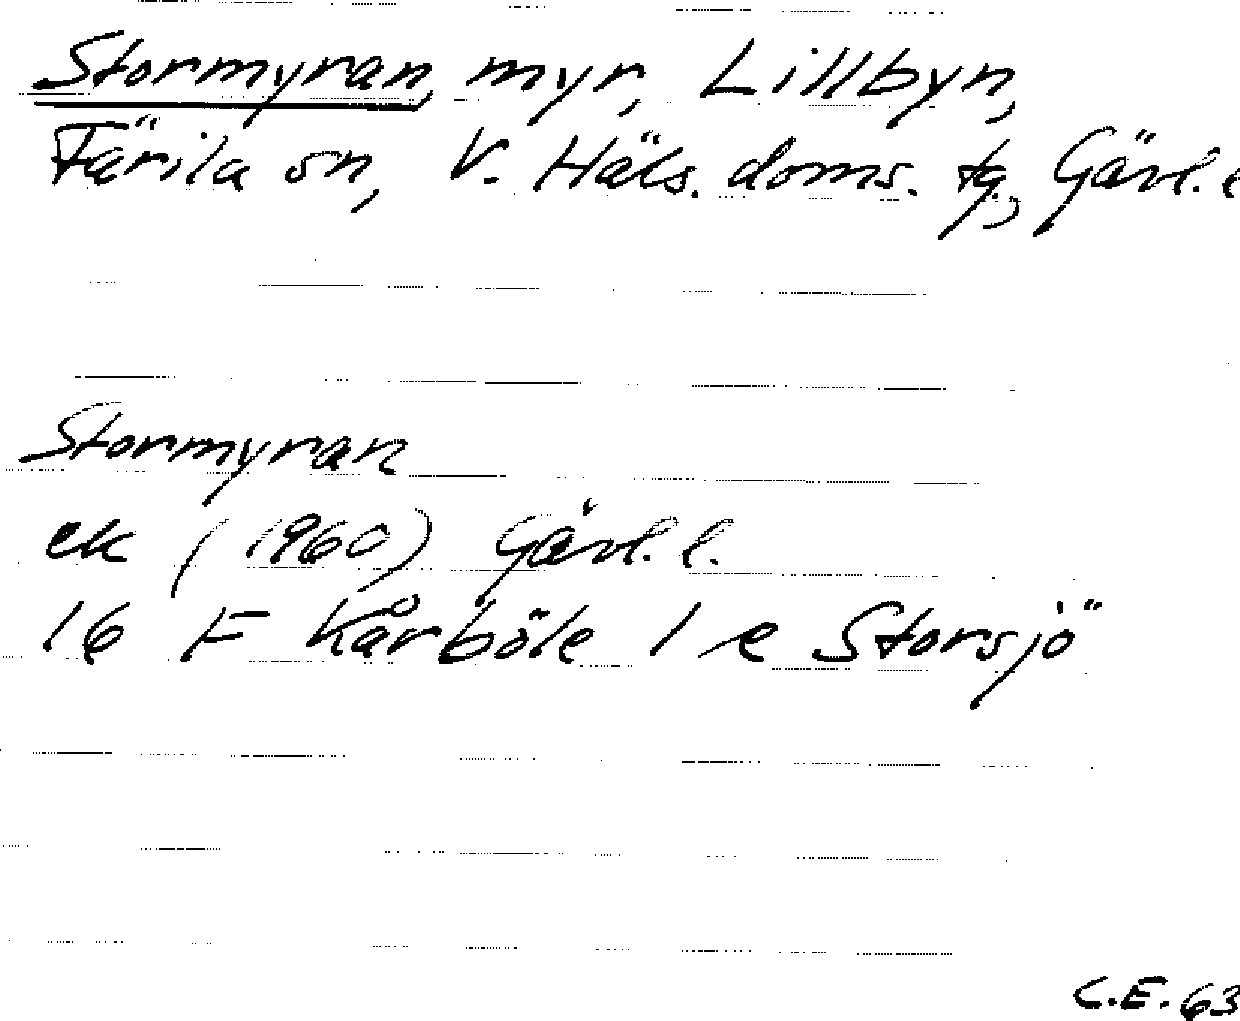 Stormyran, myr, Lillbyn,
Färila sn, V. Häls. doms. tg, Gävl. l
Stormyran
ek (1960) Gävl. l.
16 F Kårböle 1 e Storsjö
C.E. 63